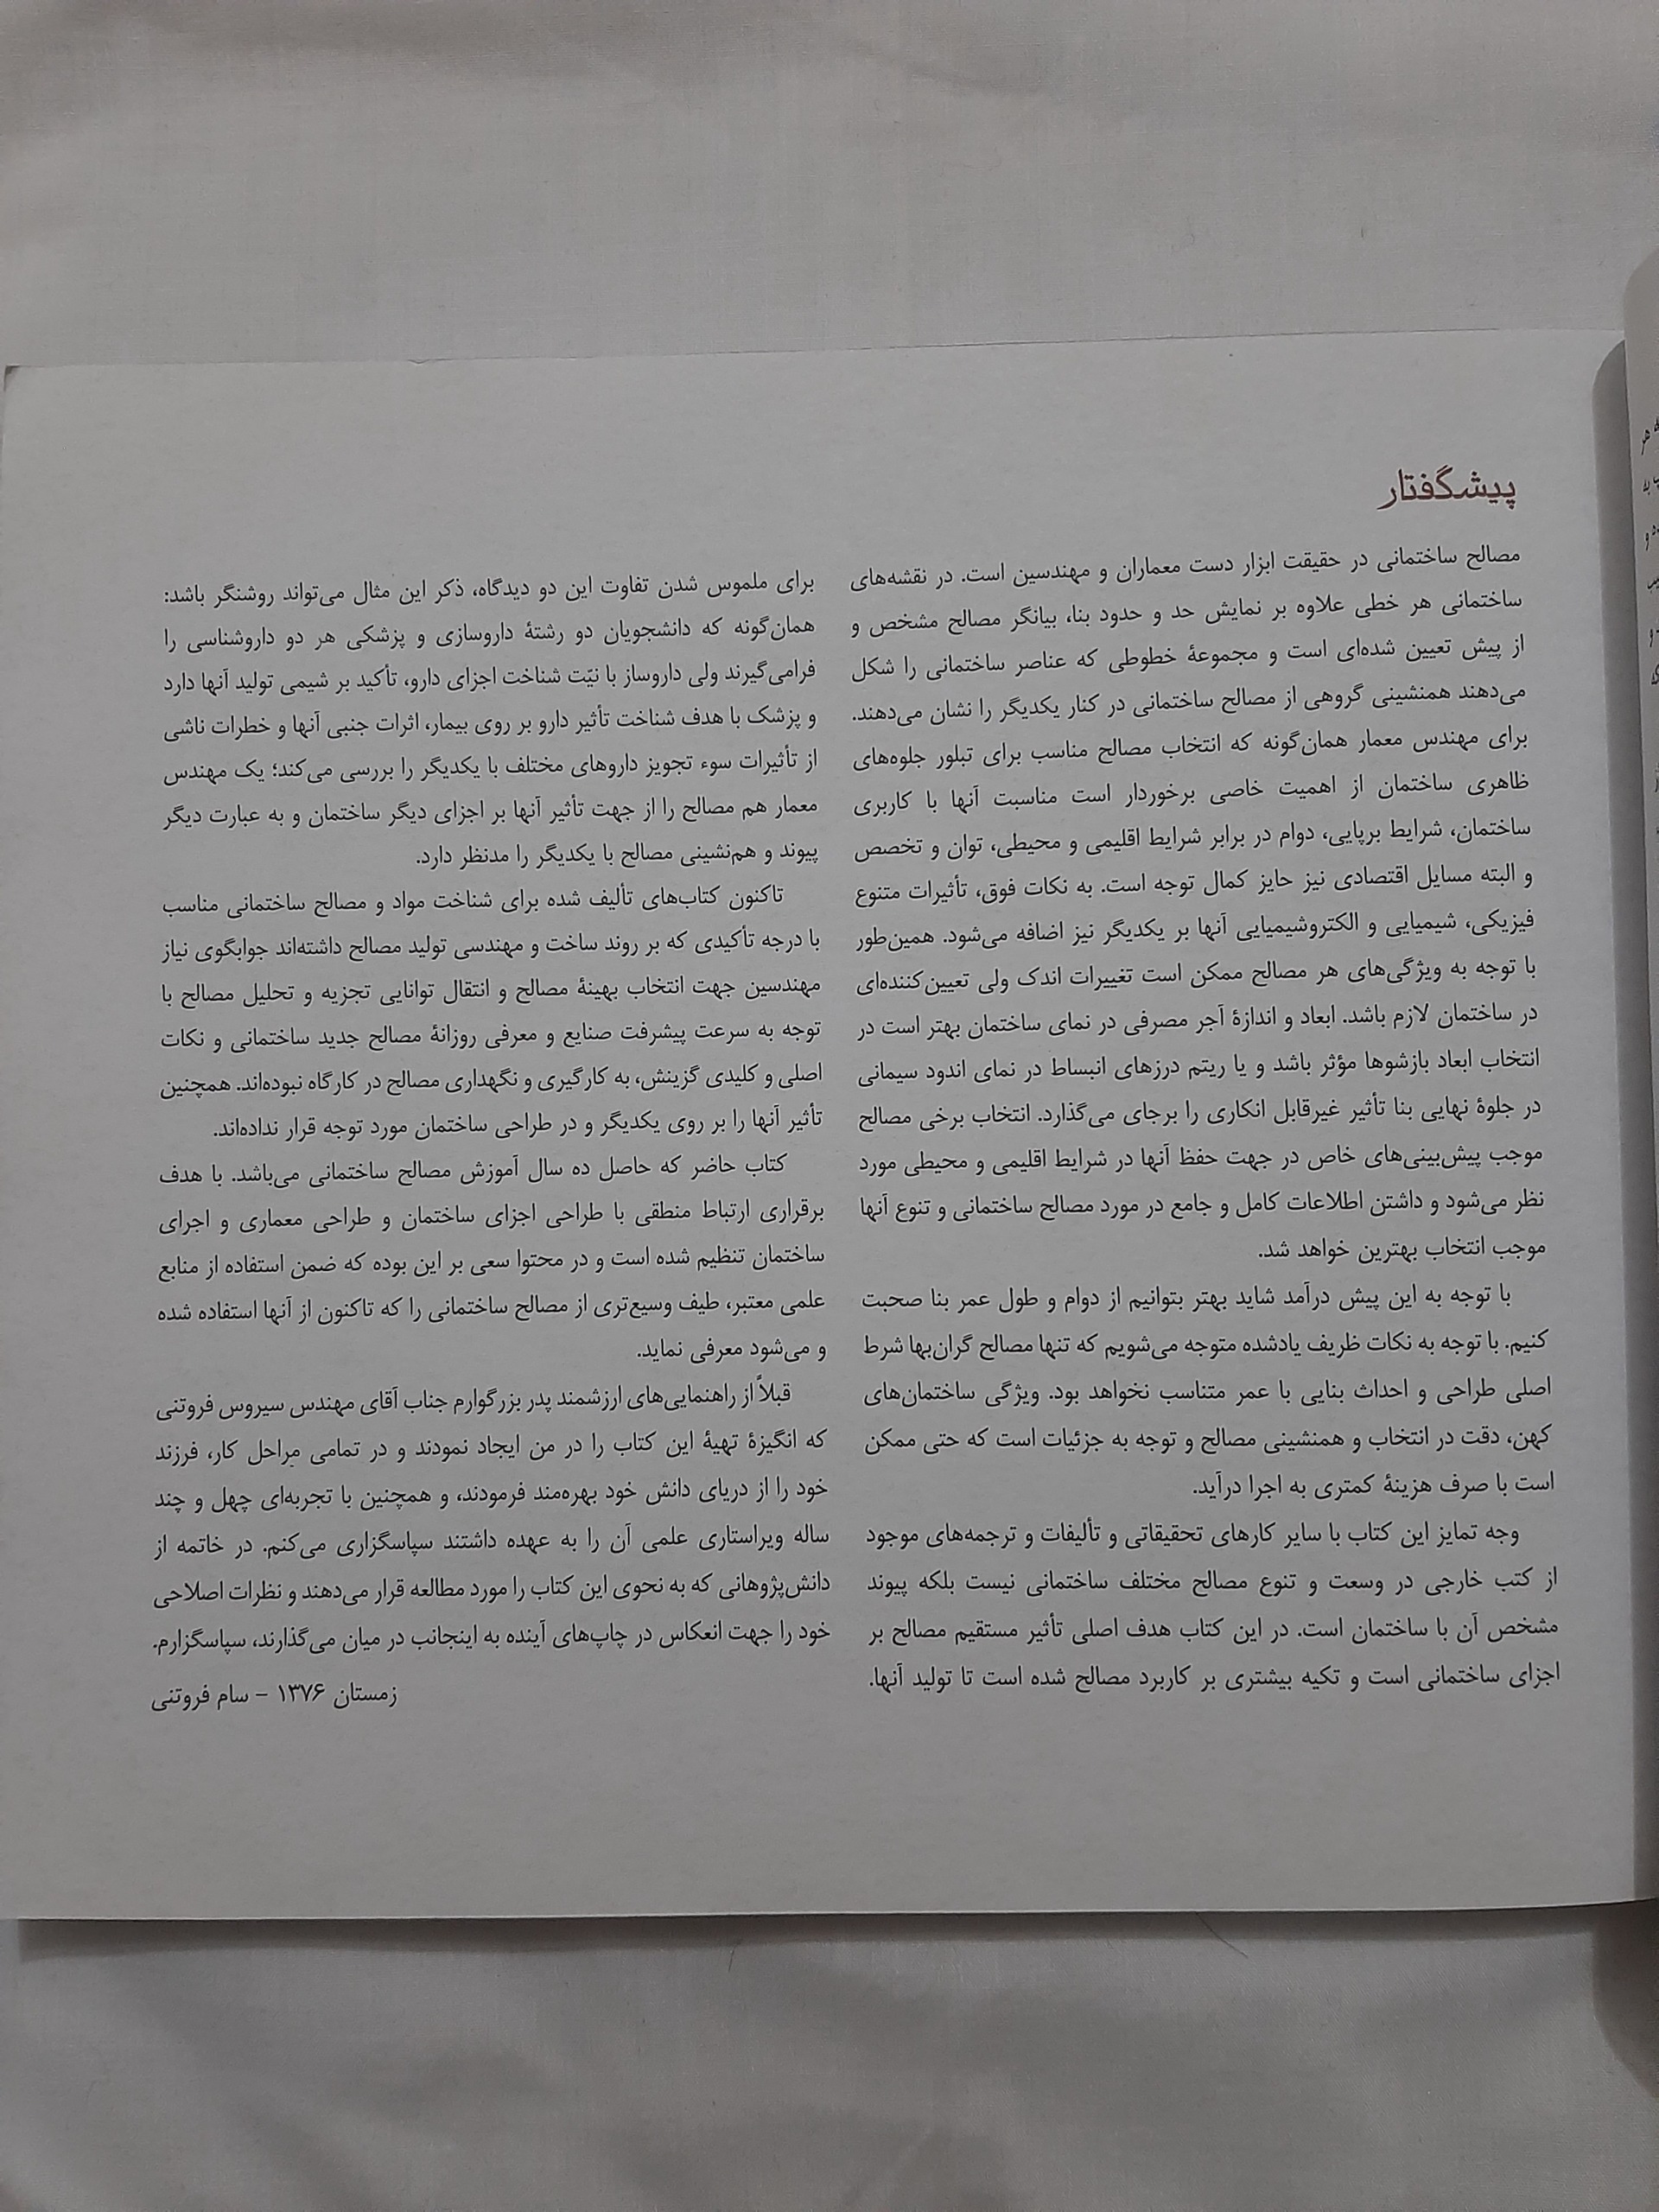 پیشگفتار
مصالح ساختمانی در حقیقت ابزار دست معماران و مهندسین است. در نقشه‌های
ساختمانی هر خطی علاوه بر نمایش حد و حدود بنا، بیانگر مصالح مشخص و
از پیش تعیین شده‌ای است و مجموعهٔ خطوطی که عناصر ساختمانی را شکل
می‌دهند همنشینی گروهی از مصالح ساختمانی در کنار یکدیگر را نشان می‌دهند.
برای مهندس معمار همان‌گونه که انتخاب مصالح مناسب برای تبلور جلوه‌های
ظاهری ساختمان از اهمیت خاصی برخوردار است مناسبت آنها با کاربری
ساختمان، شرایط برپایی، دوام در برابر شرایط اقلیمی و محیطی، توان و تخصص
و البته مسایل اقتصادی نیز حایز کمال توجه است. به نکات فوق، تأثیرات متنوع
فیزیکی، شیمیایی و الکتروشیمیایی آنها بر یکدیگر نیز اضافه می‌شود. همین‌طور
با توجه به ویژگی‌های هر مصالح ممکن است تغییرات اندک ولی تعیین‌کننده‌ای
در ساختمان لازم باشد. ابعاد و اندازهٔ آجر مصرفی در نمای ساختمان بهتر است در
انتخاب ابعاد بازشوها مؤثر باشد و یا ریتم درزهای انبساط در نمای اندود سیمانی
در جلوهٔ نهایی بنا تأثیر غیرقابل انکاری را برجای می‌گذارد. انتخاب برخی مصالح
موجب پیش‌بینی‌های خاص در جهت حفظ آنها در شرایط اقلیمی و محیطی مورد
نظر می‌شود و داشتن اطلاعات کامل و جامع در مورد مصالح ساختمانی و تنوع آنها
موجب انتخاب بهترین خواهد شد.
با توجه به این پیش درآمد شاید بهتر بتوانیم از دوام و طول عمر بنا صحبت
کنیم. با توجه به نکات ظریف یادشده متوجه می‌شویم که تنها مصالح گران‌بها شرط
اصلی طراحی و احداث بنایی با عمر متناسب نخواهد بود. ویژگی ساختمان‌های
کهن، دقت در انتخاب و همنشینی مصالح و توجه به جزئیات است که حتی ممکن
است با صرف هزینهٔ کمتری به اجرا درآید.
وجه تمایز این کتاب با سایر کارهای تحقیقاتی و تألیفات و ترجمه‌های موجود
از کتب خارجی در وسعت و تنوع مصالح مختلف ساختمانی نیست بلکه پیوند
مشخص آن با ساختمان است. در این کتاب هدف اصلی تأثیر مستقیم مصالح بر
اجزای ساختمانی است و تکیه بیشتری بر کاربرد مصالح شده است تا تولید آنها.
برای ملموس شدن تفاوت این دو دیدگاه، ذکر این مثال می‌تواند روشنگر باشد:
همان‌گونه که دانشجویان دو رشتهٔ داروسازی و پزشکی هر دو داروشناسی را
فرامی‌گیرند ولی داروساز با نیّت شناخت اجزای دارو، تأکید بر شیمی تولید آنها دارد
و پزشک با هدف شناخت تأثیر دارو بر روی بیمار، اثرات جنبی آنها و خطرات ناشی
از تأثیرات سوء تجویز داروهای مختلف با یکدیگر را بررسی می‌کند؛ یک مهندس
معمار هم مصالح را از جهت تأثیر آنها بر اجزای دیگر ساختمان و به عبارت دیگر
پیوند و هم‌نشینی مصالح با یکدیگر را مدنظر دارد.
تاکنون کتاب‌های تألیف شده برای شناخت مواد و مصالح ساختمانی مناسب
با درجه تأکیدی که بر روند ساخت و مهندسی تولید مصالح داشته‌اند جوابگوی نیاز
مهندسین جهت انتخاب بهینهٔ مصالح و انتقال توانایی تجزیه و تحلیل مصالح با
توجه به سرعت پیشرفت صنایع و معرفی روزانهٔ مصالح جدید ساختمانی و نکات
اصلی و کلیدی گزینش، به کارگیری و نگهداری مصالح در کارگاه نبوده‌اند. همچنین
تأثیر آنها را بر روی یکدیگر و در طراحی ساختمان مورد توجه قرار نداده‌اند.
کتاب حاضر که حاصل ده سال آموزش مصالح ساختمانی می‌باشد. با هدف
برقراری ارتباط منطقی با طراحی اجزای ساختمان و طراحی معماری و اجرای
ساختمان تنظیم شده است و در محتوا سعی بر این بوده که ضمن استفاده از منابع
علمی معتبر، طیف وسیع‌تری از مصالح ساختمانی را که تاکنون از آنها استفاده شده
و می‌شود معرفی نماید.
قبلاً از راهنمایی‌های ارزشمند پدر بزرگوارم جناب آقای مهندس سیروس فروتنی
که انگیزهٔ تهیهٔ این کتاب را در من ایجاد نمودند و در تمامی مراحل کار، فرزند
خود را از دریای دانش خود بهره‌مند فرمودند، و همچنین با تجربه‌ای چهل و چند
ساله ویراستاری علمی آن را به عهده داشتند سپاسگزاری می‌کنم. در خاتمه از
دانش‌پژوهانی که به نحوی این کتاب را مورد مطالعه قرار می‌دهند و نظرات اصلاحی
خود را جهت انعکاس در چاپ‌های آینده به اینجانب در میان می‌گذارند، سپاسگزارم.
زمستان ۱۳۷۶ – سام فروتنی